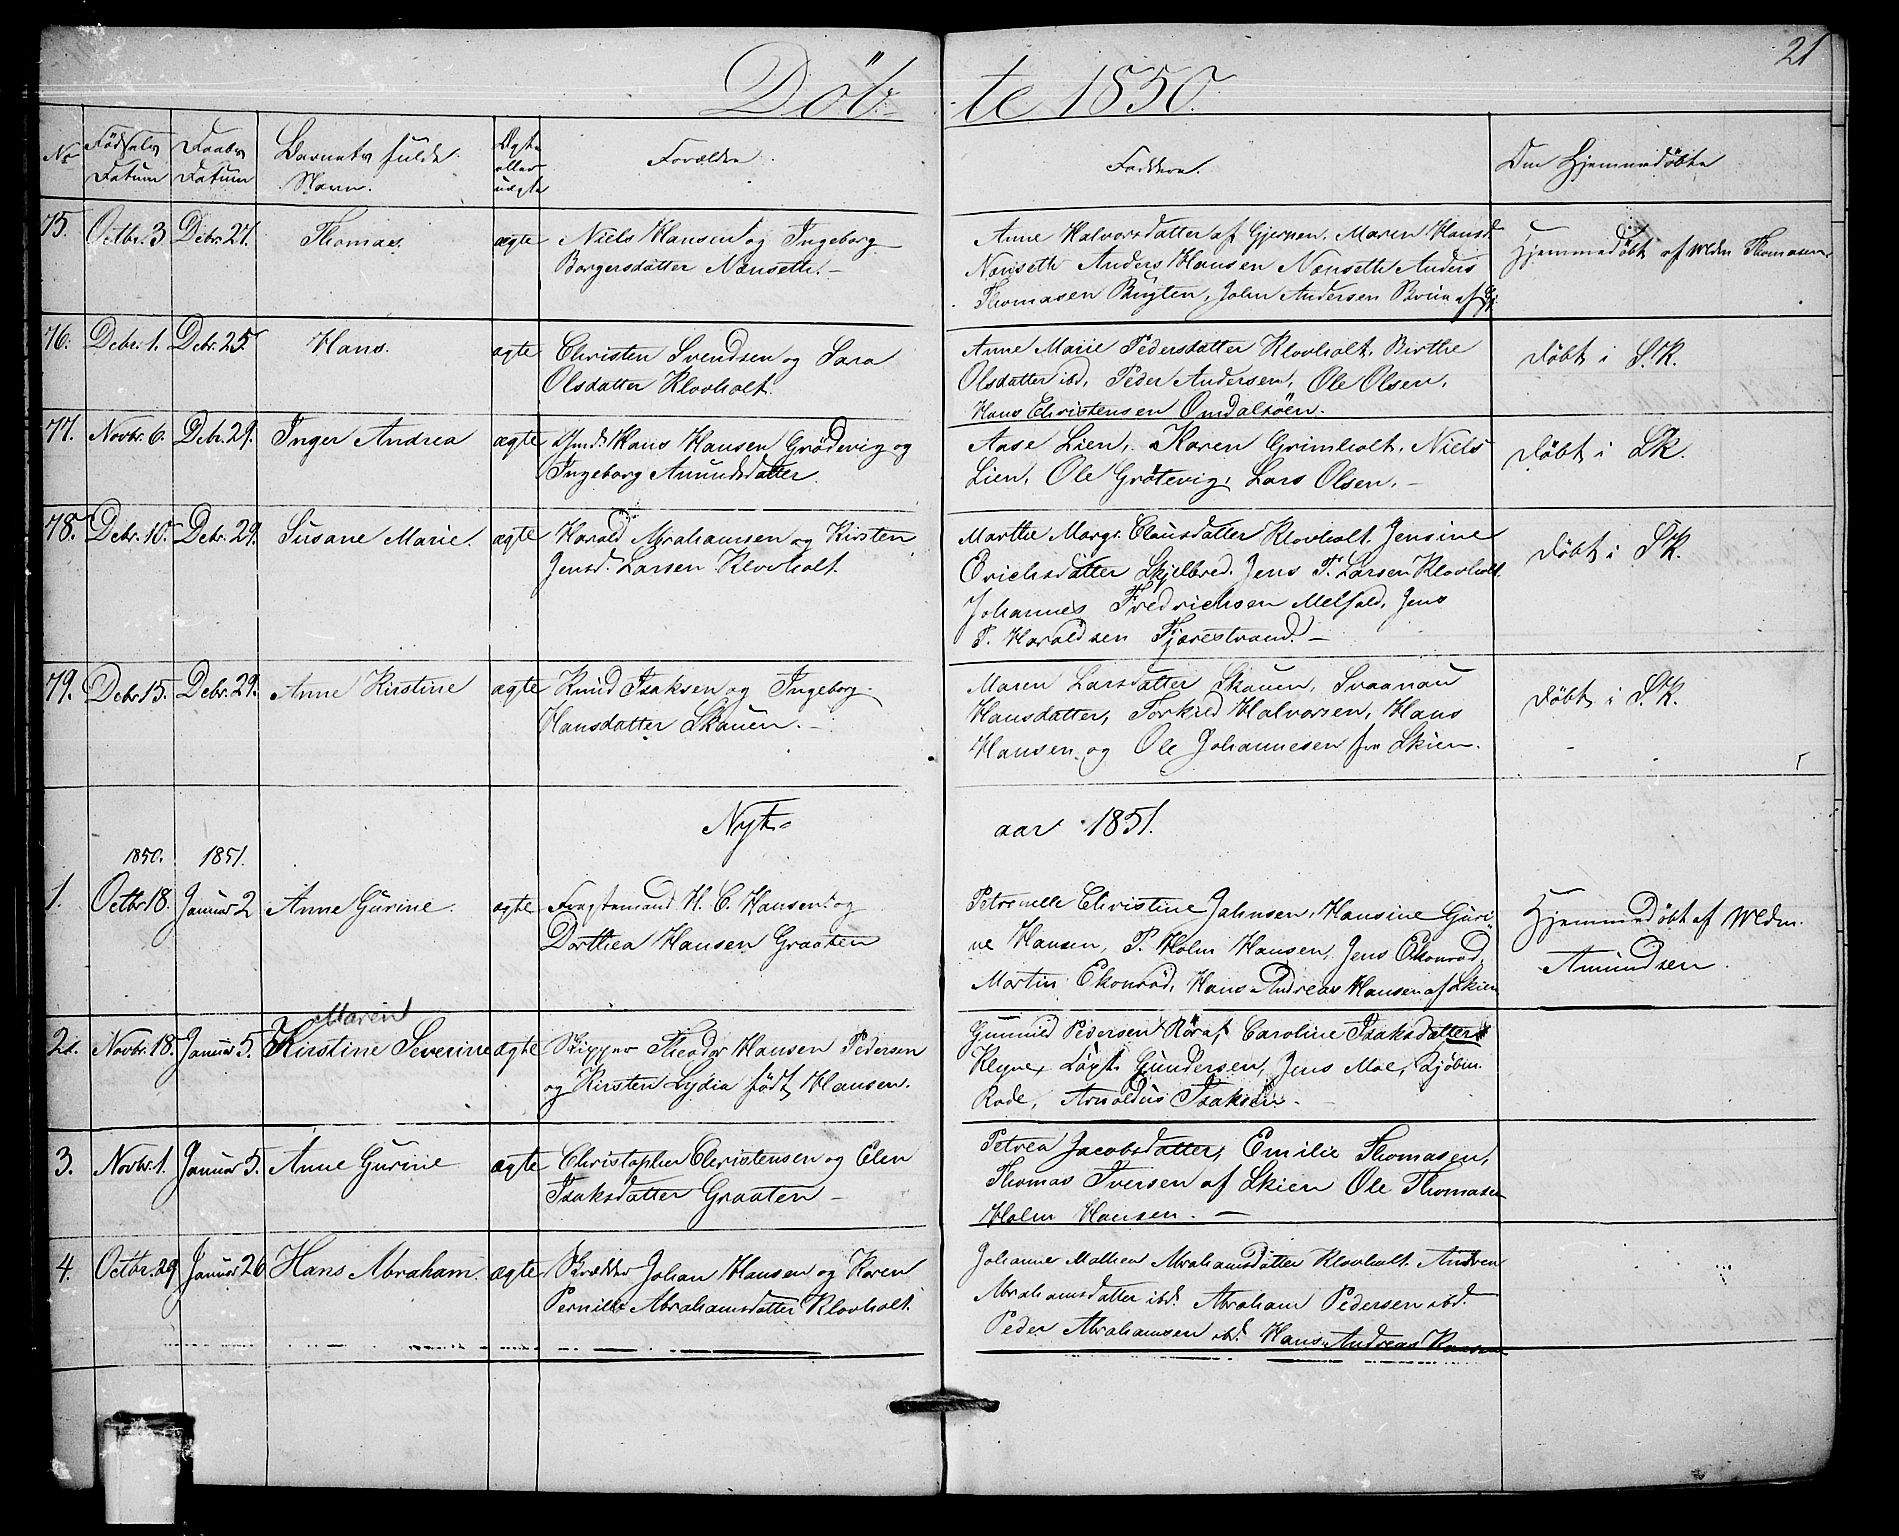 21
Döb- te 1850.
No Fødsels Datum Daabs Datum Barnets fulde Navn. Ægte eller uægte Forældre Faddere. Om Hjemmedöbte
75. Octbr. 3 Debr. 27. Thomas. ægte Niels Hansen og Ingeborg
Borgersdatter Nenseth. —
Anne Halvorsdatter af Gjerpen, Maren Hansd.
Nenseth Anders Hansen Nenseth Anders
Thomasen Bugten, John Andersen af
Hjemmedöbt af Thomasen.
76. Debr. 1. Debr. 25. Hans. ægte Christen Svendsen og Sara
Olsdatter Klovholt.
Anne Marie Pedersdatter Klovholt, Birthe
Olsdatter ibd, Peder Andersen, Ole Olsen,
Hans Christensen Omdalsöen.
Döbt i S.K.
77. Novbr. 6. Debr. 29. Inger Andrea ægte Hans Hansen Grödevig og
Ingeborg Amundsdatter.
Aase Lien, Karen Grimholt, Niels
Lien, Ole Grötevig, Lars Olsen. —
Döbt i S.K.
78. Debr. 10. Debr. 29. Susane Marie. ægte Harald Abrahamsen og Kirsten
Jensd. Larsen Klovholt.
Marthe Margr. Clausdatter Klovholt, Jensine
Erichsdatter Skjelbred, Jens P. Larsen Klovholt
Johannes Fredrichsen Melfald, Jens
P. Haraldsen Fjærestrand. —
Döbt i S.K.
79. Debr. 15. Debr. 29. Anne Kirstine ægte Knud Isaksen og Ingeborg
Hansdatter Skauen. —
Maren Larsdatter Skauen,
Hansdatter, Torkild Halvorsen, Hans
Hansen og Ole Johannesen fra Skien.
Döbt i S.K.
Nyt- aar 1851.
1850. 1851.
1. Octbr. 18. Januar 2 Anne Gurine. ægte Fragtemand H. C. Hansen og
Dorthea Hansen Graaten
Petronelle Christine Jahnsen, Hansine Guri-
ne Hansen, P. Holm Hansen, Jens Ekonröd,
Martin Ekonröd, Hans Andreas Hansen af Skien
Hjemmedöbt af
Amundsen.
Maren
2. Novbr. 18. Januar 5. Kirstine Severine ægte Skipper Theodor Hansen Pedersen
og Kirsten Lydia födt Hansen.
Gunnild Pedersen Röraf, Caroline Isaksdatter
Klyve, Gundersen, Jens Moe,
Rode, Arnoldus Isaksen.
3. Novbr. 1. Januar 5. Anne Gurine ægte Christopher Christensen og Elen
Isaksdatter Graaten —
Petrea Jacobsdatter, Emilie Thomasen,
Thomas Iversen af Skien Ole Thomasen
Holm Hansen. —
4. Octbr. 29 Januar 26 Hans Abraham. ægte Skrædder Johan Hansen og Karen
Pernille Abrahamsdatter Klovholt.
Johanne Mathea Abrahamsdatter Klovholt. Andrea
Abrahamsdatter ibd. Abraham Pedersen ibd.
Peder Abrahamsen ibd. Hans Andreas